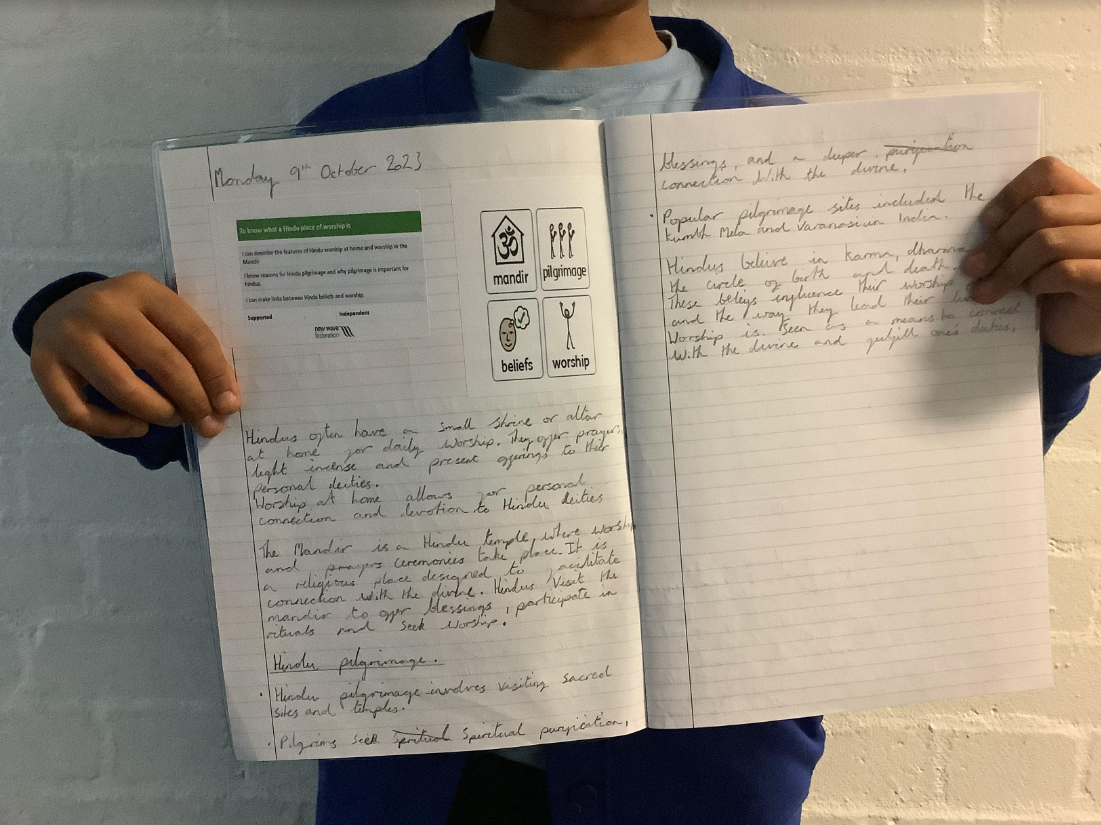 Monday 9th October 2023
To know what a Hindu place of worship is
I can describe the features of Hindu worship at home and worship in the
Mandir
I know reasons for Hindu pilgrimage and why pilgrimage is important for
hindus.
I can make links between Hindu beliefs and worship.
Supported Independent
new wave
federation
ॐ
mandir
pilgrimage
beliefs
worship
Hindus often have a small shrine or altar
at home for daily worship. They offer prayers,
light incense and present offerings to their
personal deities.
Worship at home allows for personal
connection and devotion to Hindu deities
The Mandir is a Hindu temple, where worship
and prayers ceremonies take place. It is
a religious place designed to facilitate
connection with the divine. Hindus visit the
mandir to offer blessings, participate in
rituals and seek worship.
Hindu pilgrimage.
• Hindu pilgrimage involves visiting sacred
sites and temples.
• Pilgrims seek spritual spiritual purification,
blessings, and a deeper purification
connection with the divine.
• Popular pilgrimage sites included the
Kumbh Mela and Varanasi in India.
Hindus believe in karma, dharma
the circle of birth and death
These beliefs influence their worship
and the way they lead their
Worship is seen as a means to connect
with the divine and fulfill one's duties.